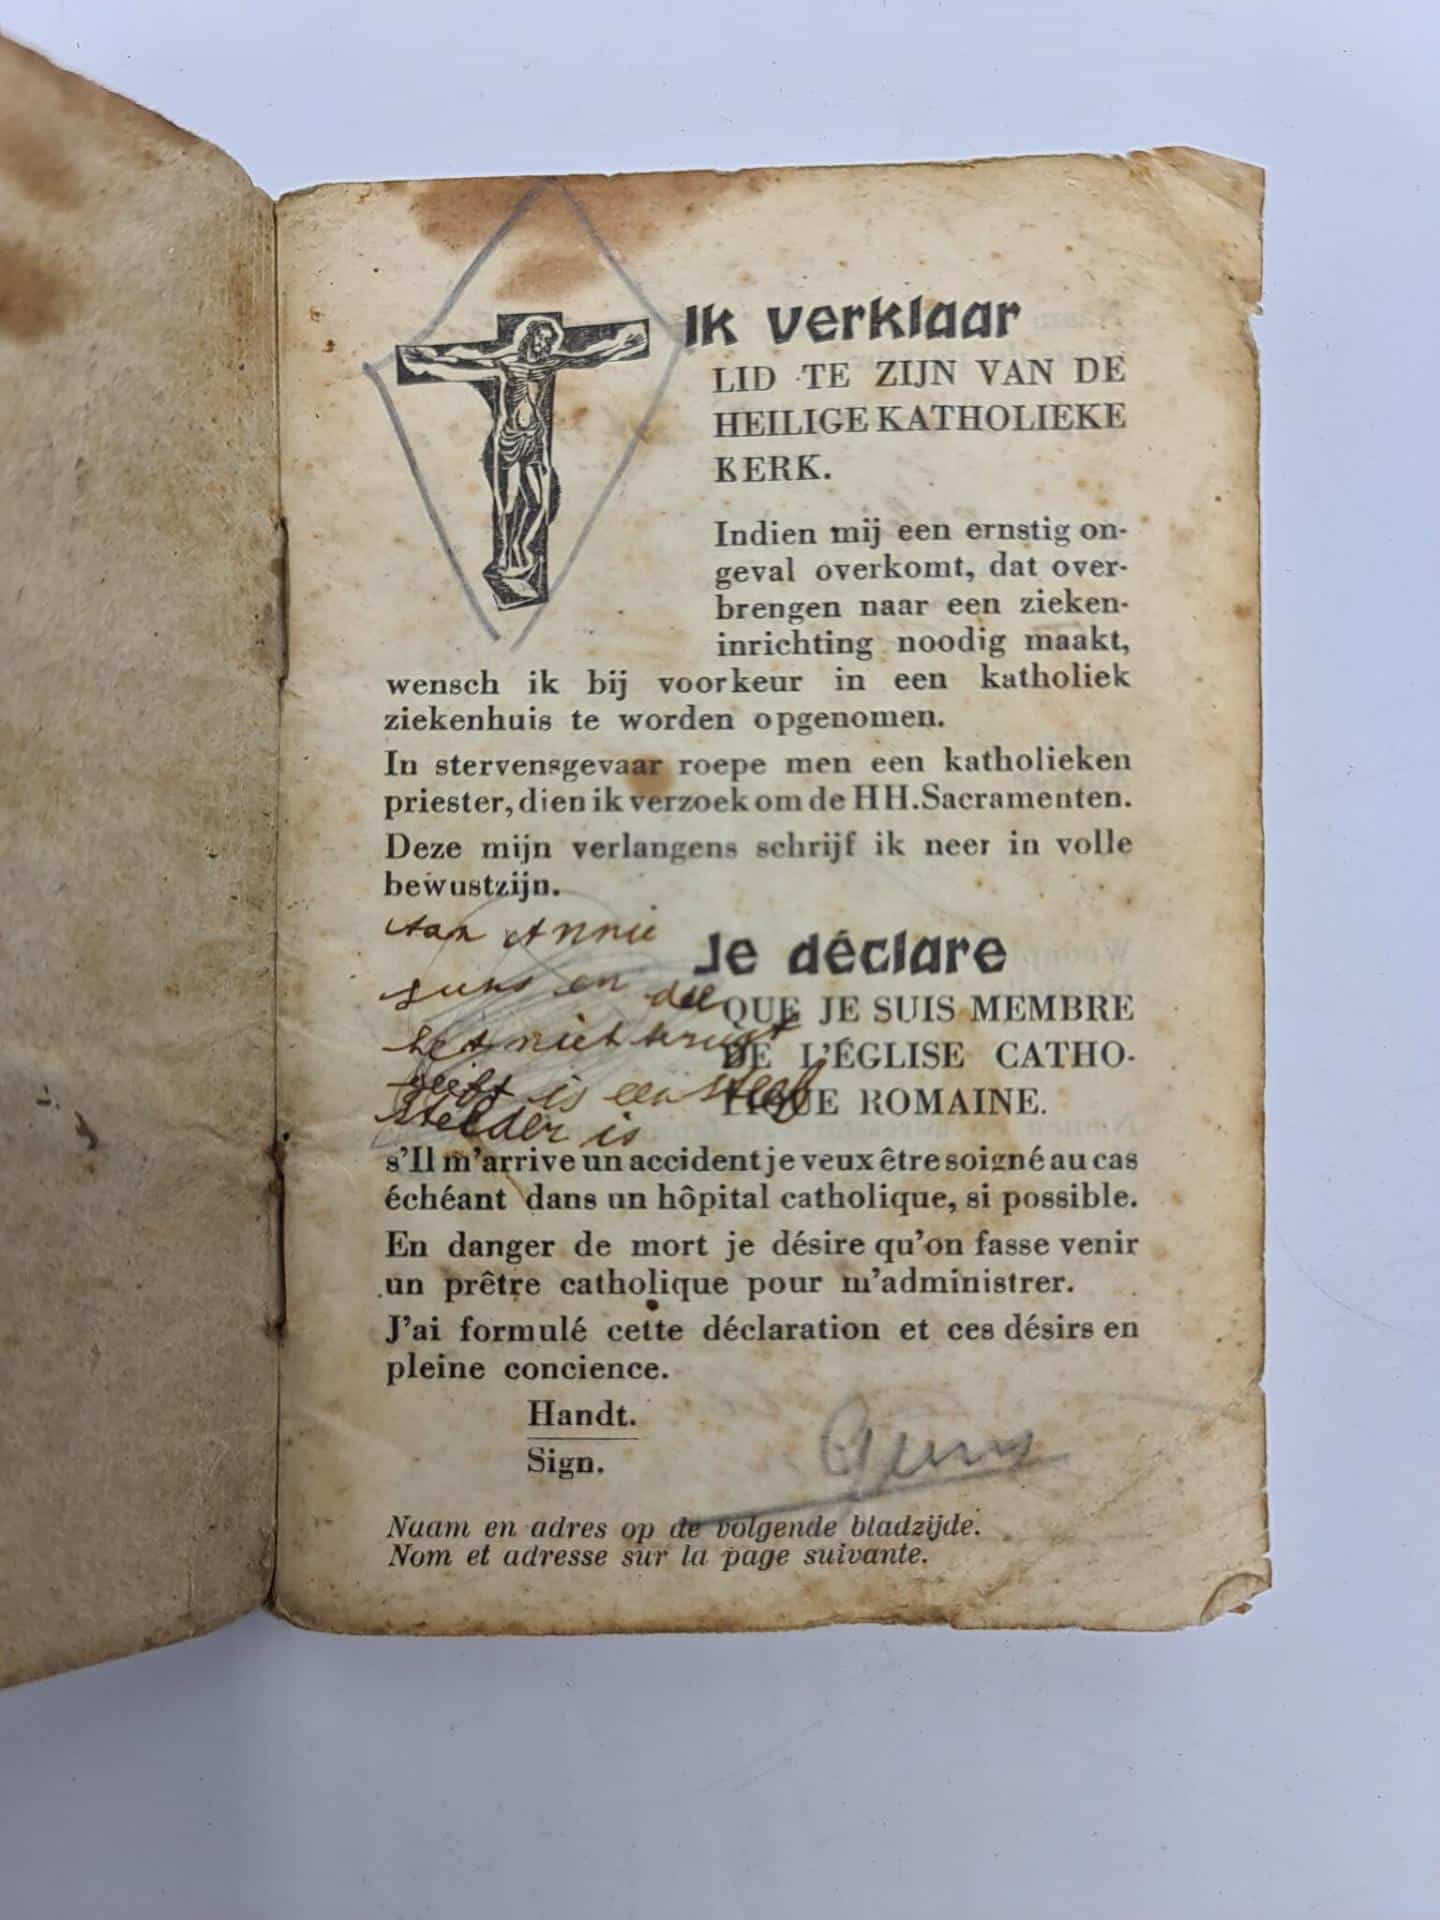 Ik verklaar
LID TE ZIJN VAN DE
HEILIGE KATHOLIEKE
KERK.
Indien mij een ernstig on-
geval overkomt, dat over-
brengen naar een zieken-
inrichting noodig maakt,
wensch ik bij voorkeur in een katholiek
ziekenhuis te worden opgenomen.
In stervensgevaar roepe men een katholieken
priester, dien ik verzoek om de HH. Sacramenten.
Deze mijn verlangens schrijf ik neer in volle
bewustzijn.
aan Annie
en die
het niet
is een
is
Je déclare
QUE JE SUIS MEMBRE
DE L'ÉGLISE CATHO-
LIQUE ROMAINE.
s'Il m'arrive un accident je veux être soigné au cas
échéant dans un hôpital catholique, si possible.
En danger de mort je désire qu'on fasse venir
un prêtre catholique pour m'administrer.
J'ai formulé cette déclaration et ces désirs en
pleine concience.
Handt.
Sign.
Naam en adres op de volgende bladzijde.
Nom et adresse sur la page suivante.